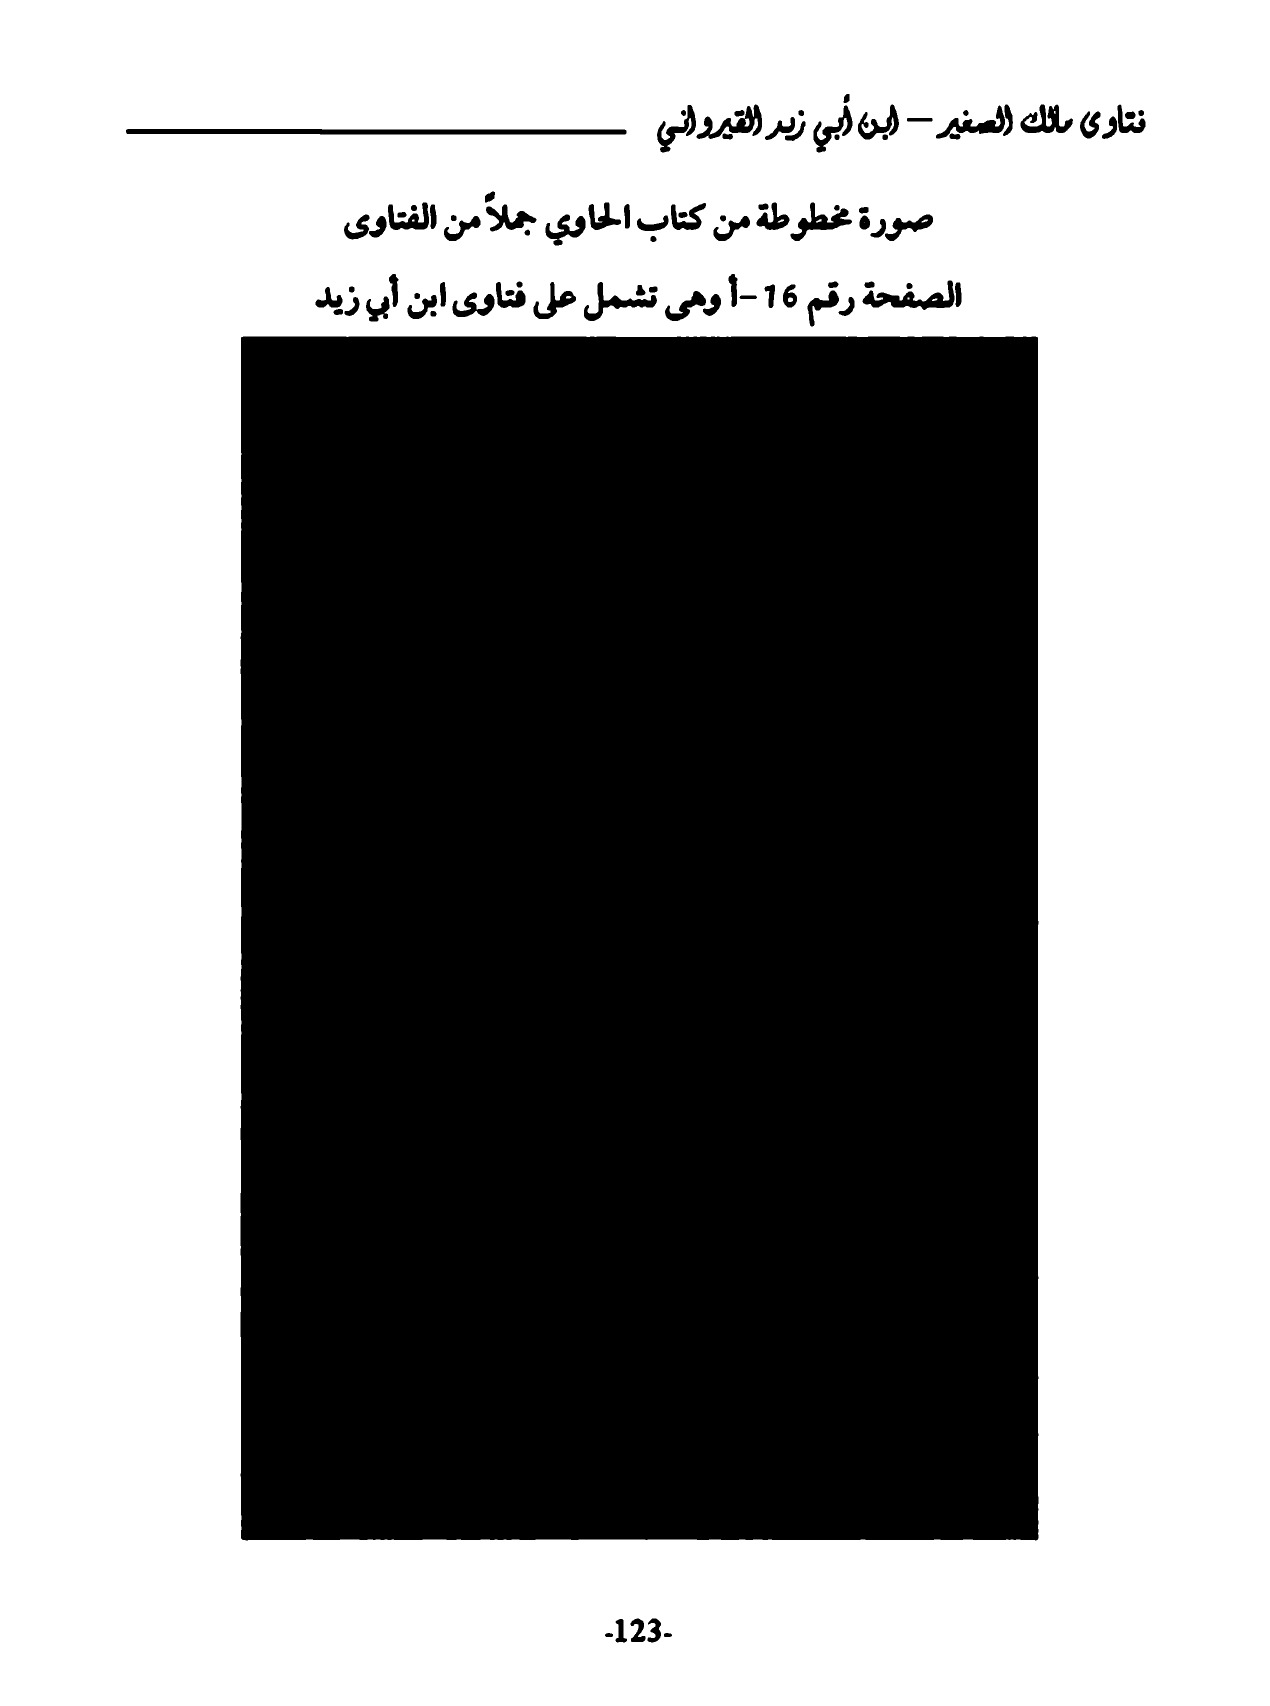 فتاوى مالك الصغير – ابن أبي زيد القيرواني
صورة مخطوطة من كتاب الحاوي جملاً من الفتاوى
الصفحة رقم 16-أ وهى تشمل على فتاوى ابن أبي زيد
-123-